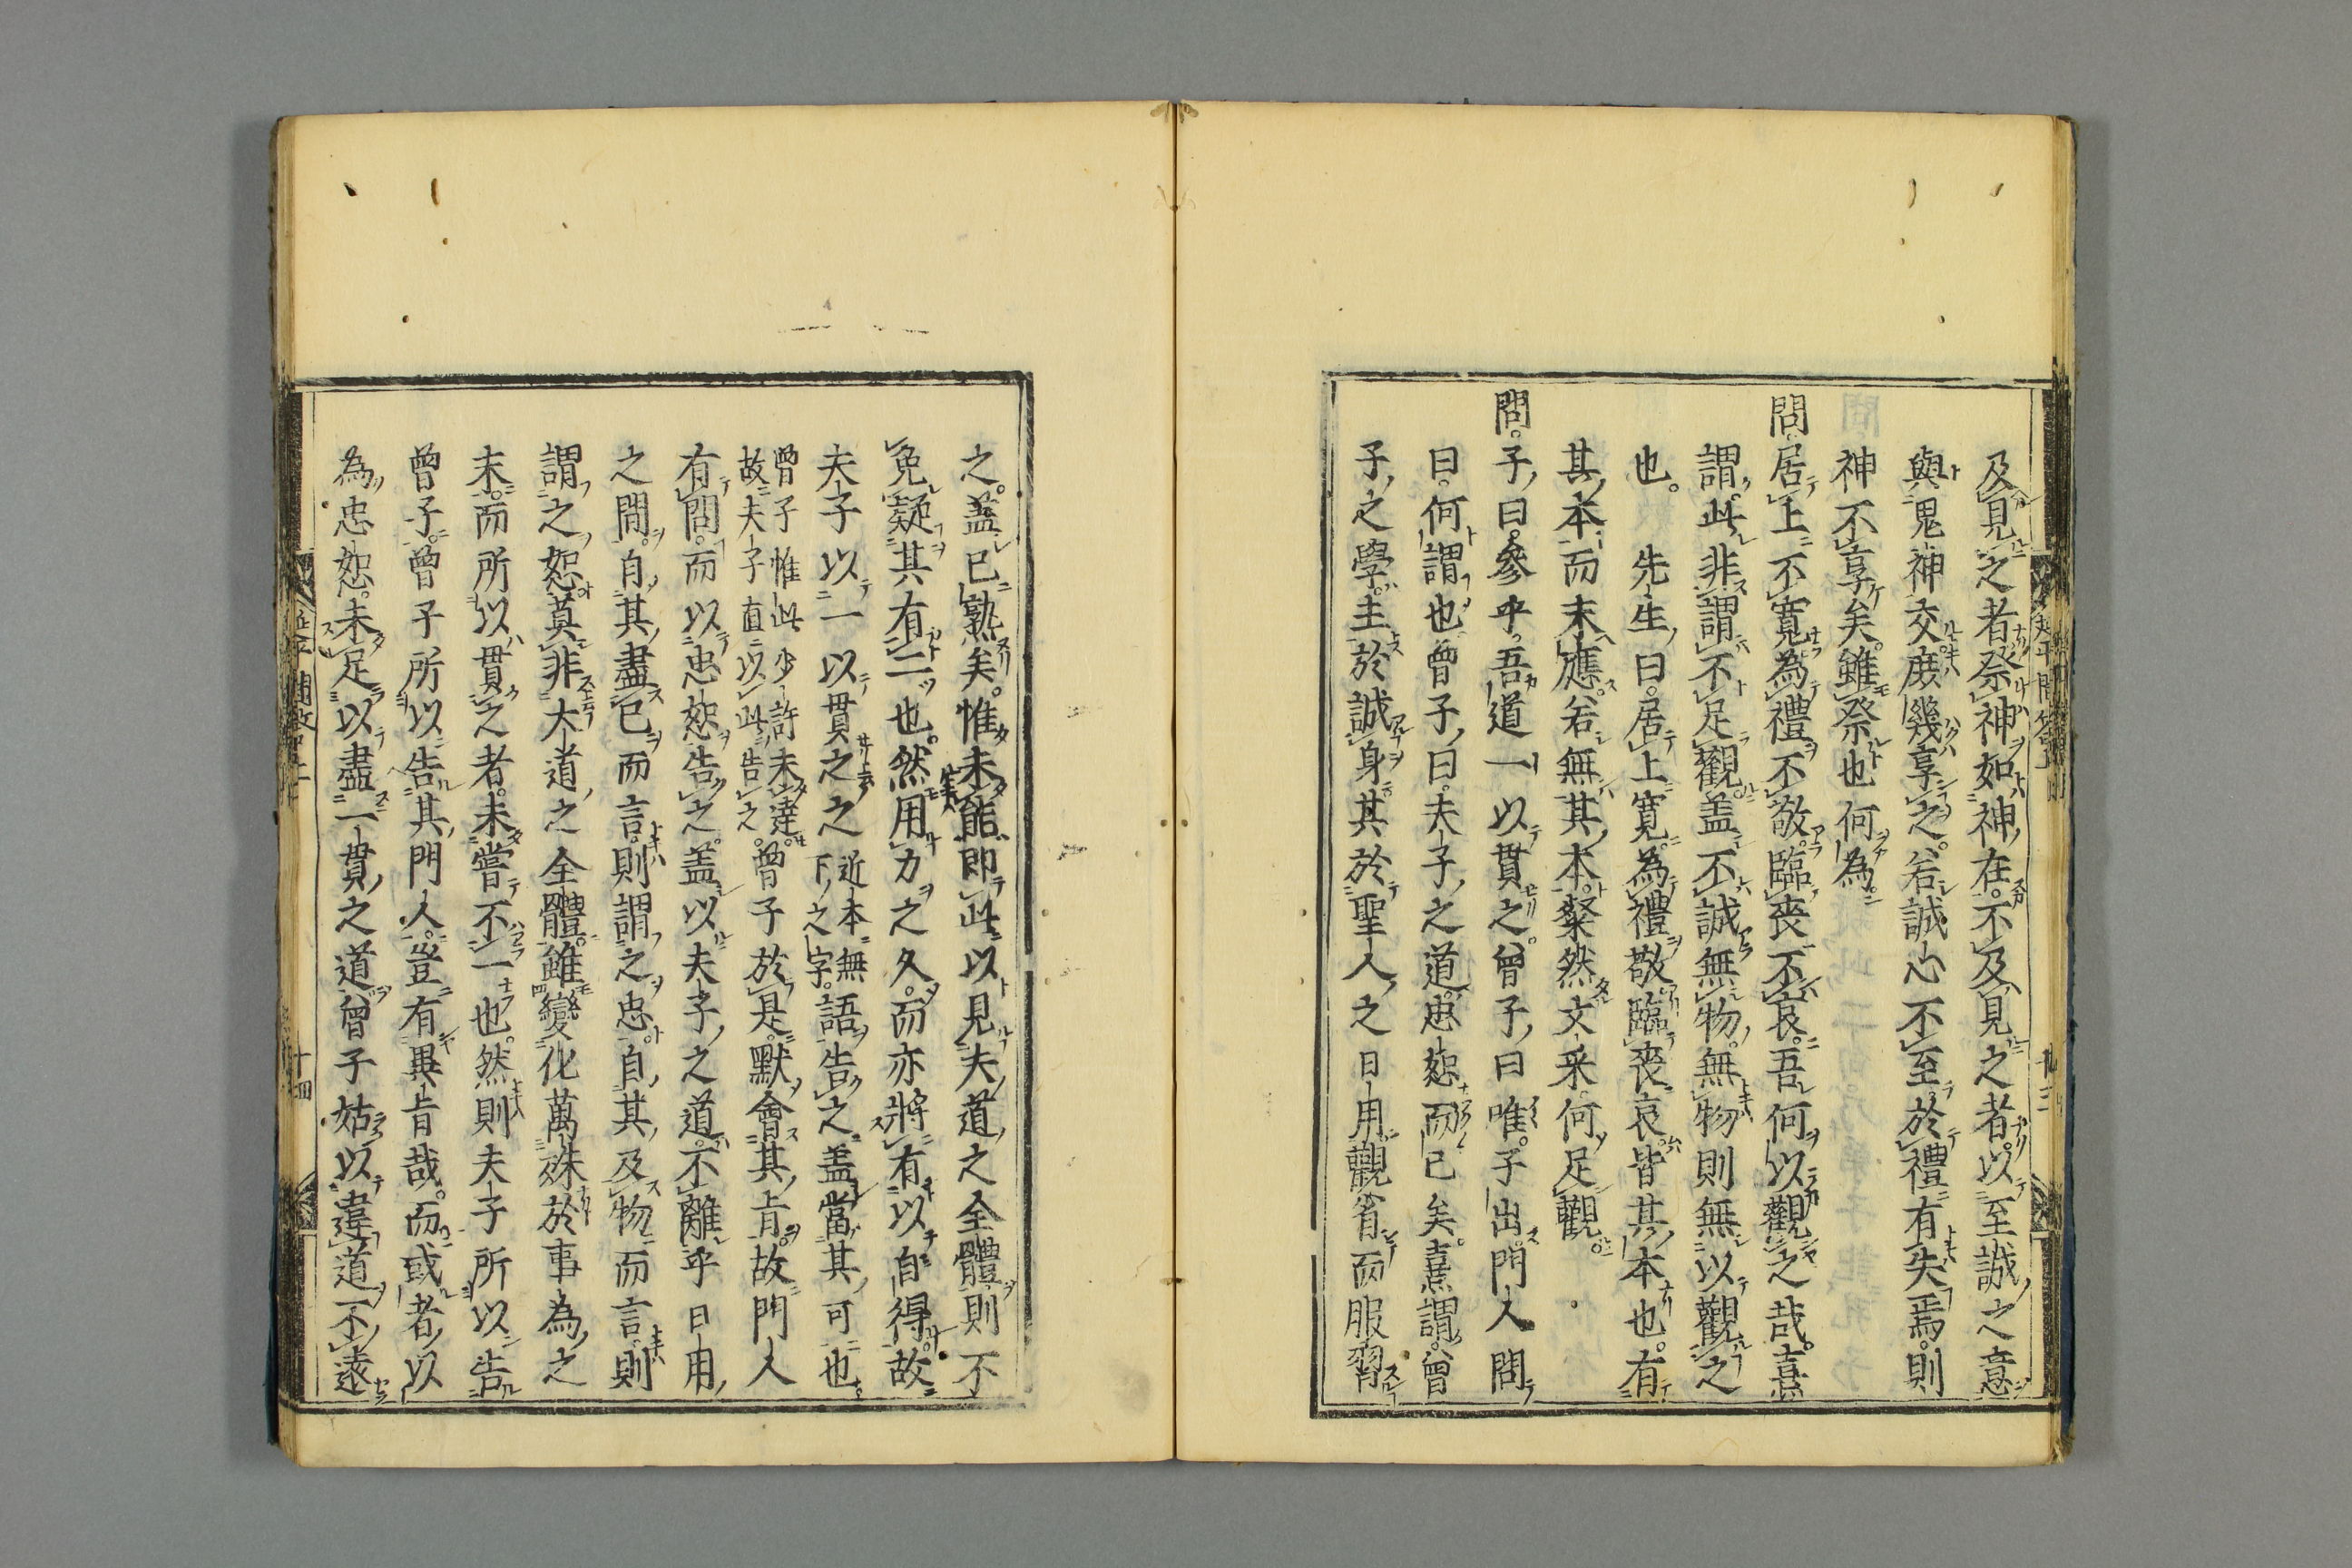 及見之者祭神如神在不及見之者以至誠之意
與鬼神交庶幾享之若誠心不至於禮有失焉則
神不享矣雖祭也何為
問居上不寛為禮不敬臨喪不哀吾何以觀之哉熹
謂此非謂不足觀盖不誠無物無物則無以觀之
也 先生曰居上寛為禮敬臨喪哀皆其本也有
其本而末應若無其本粲然文采何足觀
問子曰參乎吾道一以貫之曾子曰唯子出門人問
曰何謂也曾子曰夫子之道忠恕而已矣熹謂曾
子之學主於誠身其於聖人之日用觀省而服習
之盖已熟矣惟未能即此以見夫道之全體則不
免疑其有二也然用力之久而亦將有以自得故
夫子以一以貫之之近本無下之字語告之盖當其可也
曾子惟此少許未達故夫子直以此告之曾子於是默會其㫖故門人
有問而以忠恕告之盖以夫子之道不離乎日用
之間自其盡已而言則謂之忠自其及物而言則
謂之恕莫非大道之全體雖變化萬殊於事為之
末而所以貫之者未嘗不一也然則夫子所以告
曾子曾子所以告其門人豈有異㫖哉而或者以
為忠恕未足以盡一貫之道曾子姑以違道不遠
十四